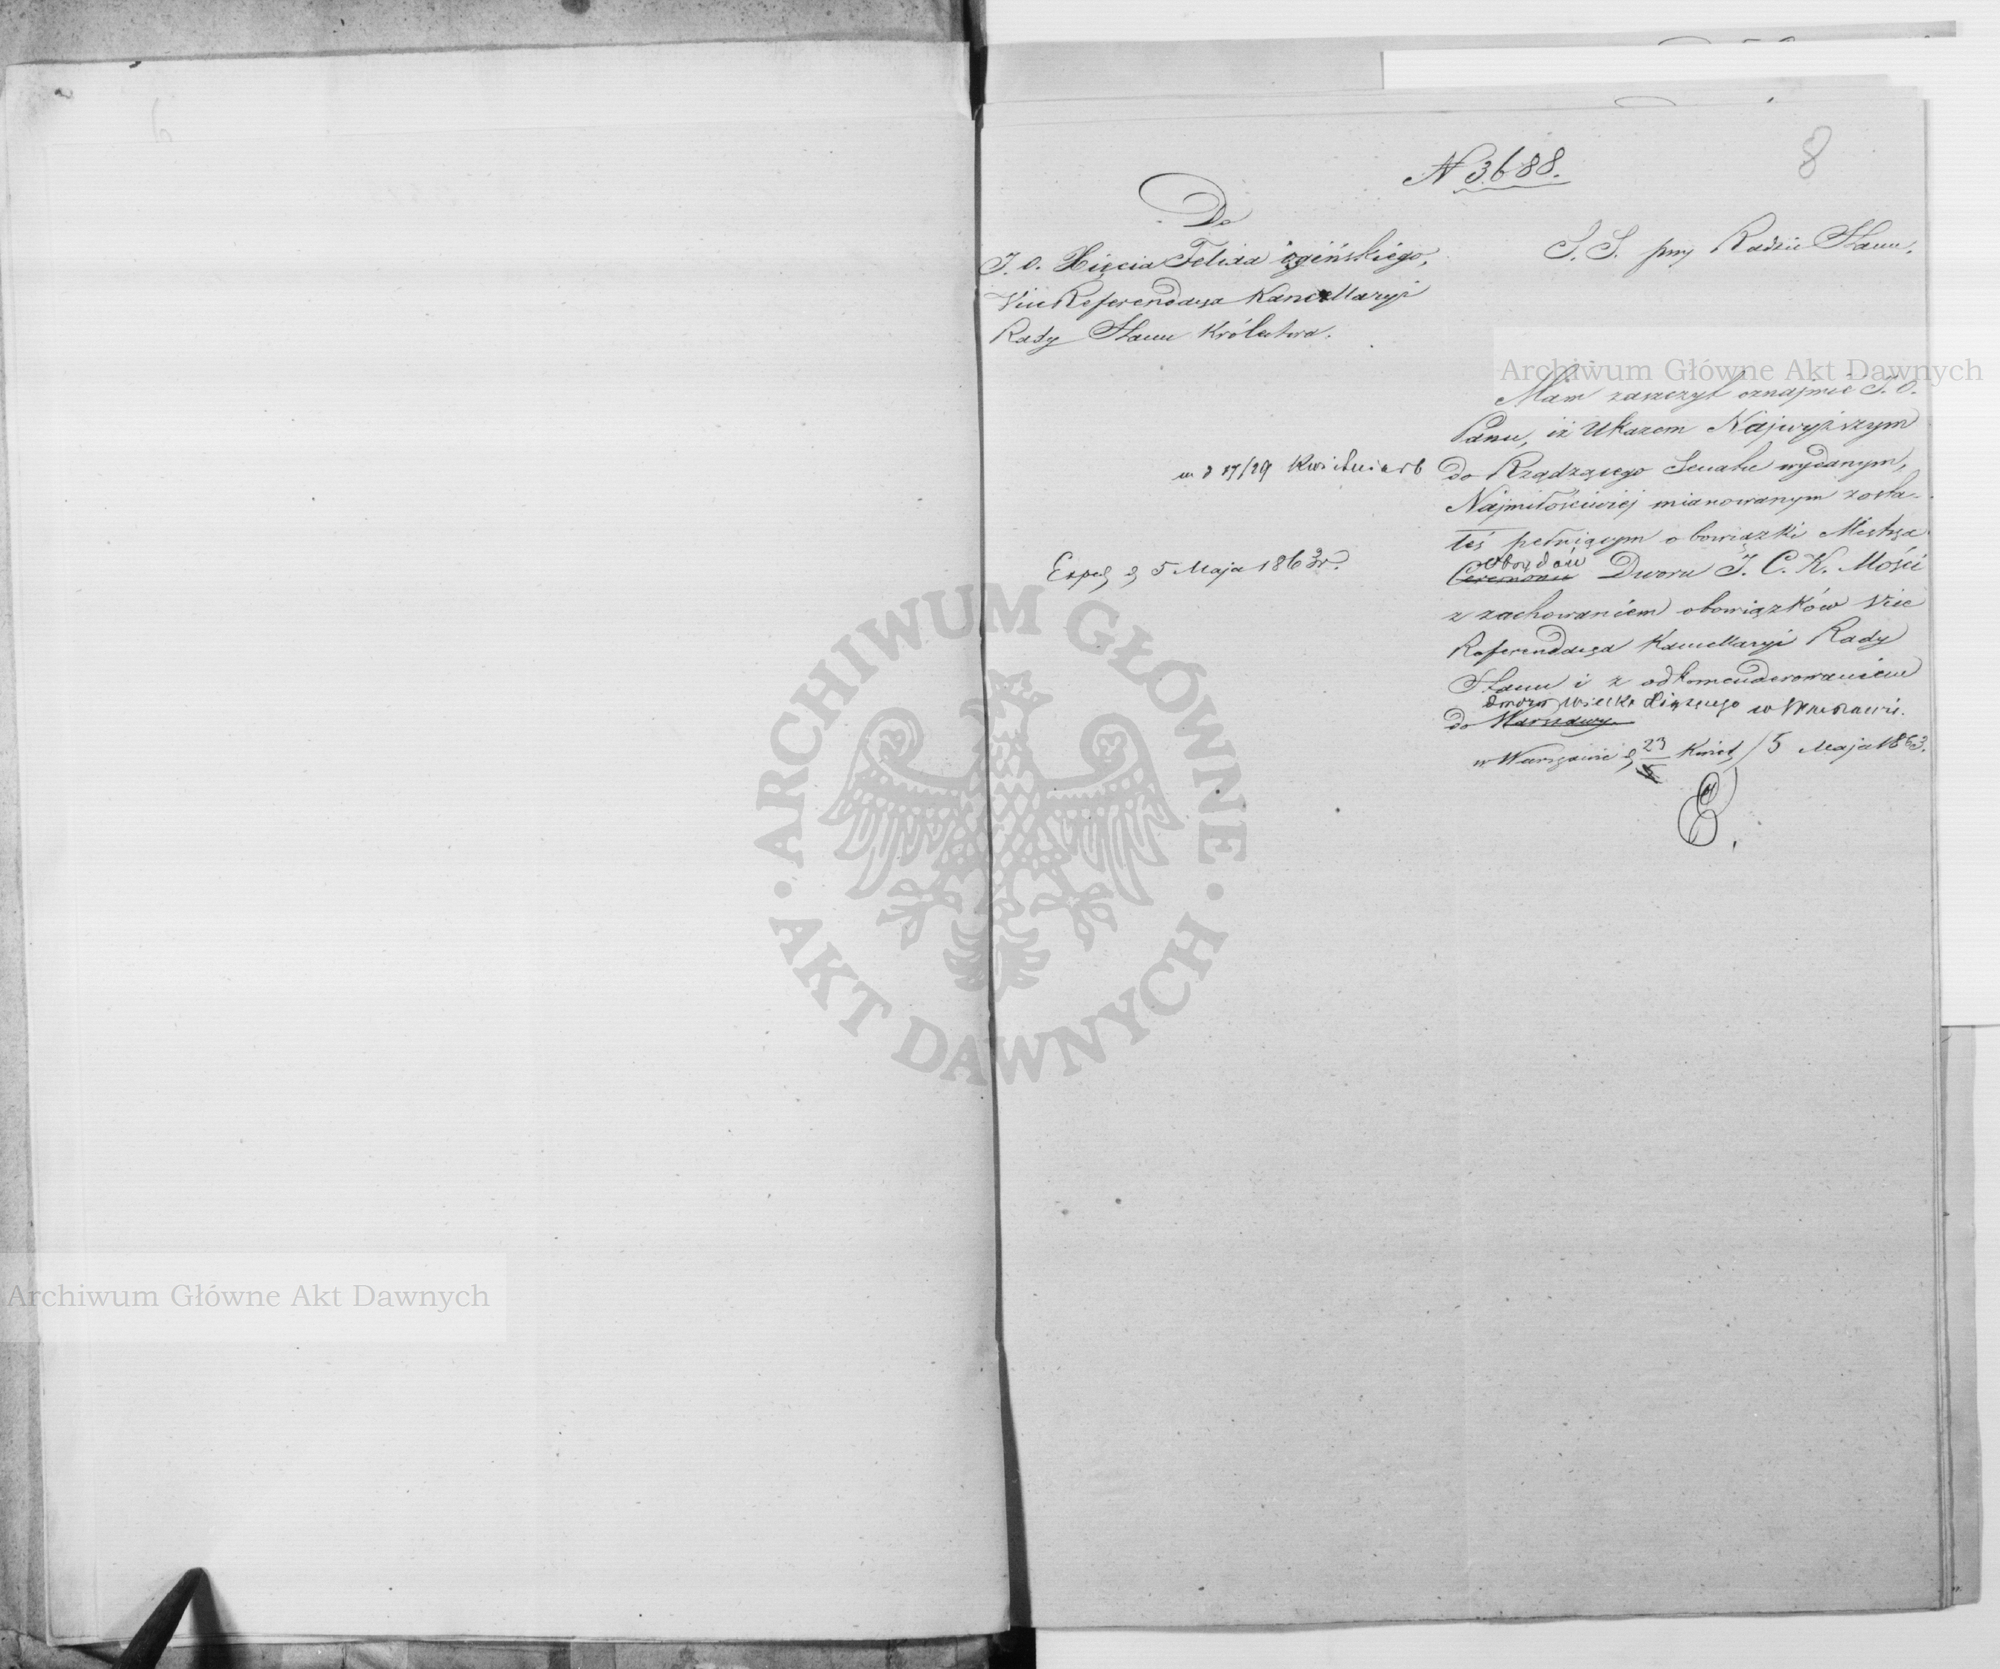 8
N 3688.
Do
J. O. Xięcia Felixa Ogińskiego,
Vice Referendarza Kancellaryi
Rady Stanu Królestwa.
S. S. przy Radzie Stanu.
Mam zaszczyt oznajmić J. O.
Panu, iż Ukazem Najwyższym
w d 17/29 Kwietnia rb
do Rządzącego Senatu wydanym,
Najmiłościwiej mianowanym zosta-
łeś pełniącym obowiązki Mistrza
obrzędów
Ceremonii Dworu J. C. K. Mości
z zachowaniem obowiązków Vice
Referendarza Kancellaryi Rady
Stanu i z odkomenderowaniem
dworu Wielko Xiążęcego w Warszawie.
do Warszawy.
w Warszawie d 23 Kwiet / 5 Maja 1863.
Exped d 5 Maja 1863 r.
Archiwum Główne Akt Dawnych
Archiwum Główne Akt Dawnych
ARCHIWUM GŁÓWNE
AKT DAWNYCH